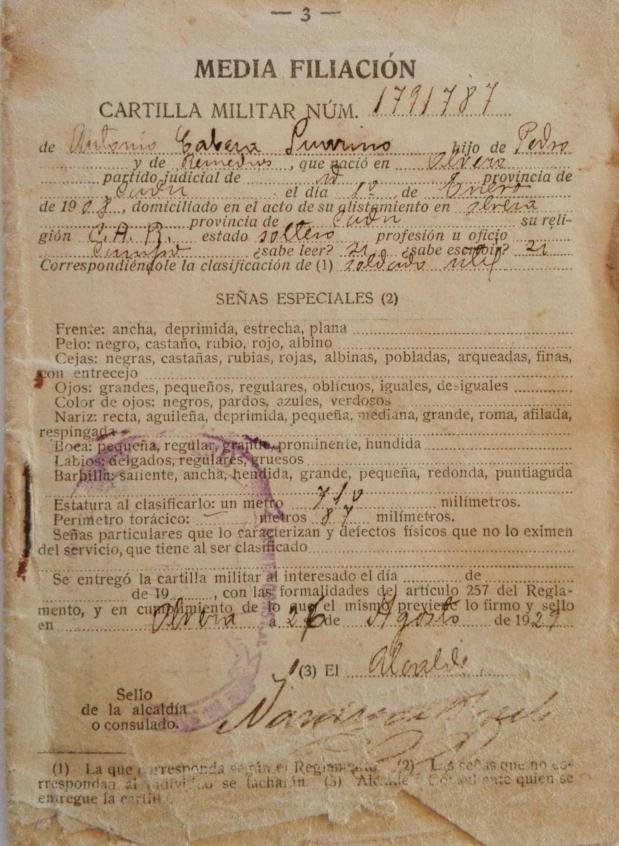 — 3 —
MEDIA FILIACIÓN
CARTILLA MILITAR NÚM. 1791787
de Antonio Cabeza hijo de Pedro
y de Remedios, que nació en Olvera
partido judicial de id provincia de
Cadiz el día 1º de Enero
de 1908, domiciliado en el acto de su alistamiento en Olvera
provincia de Cadiz su reli-
gión C.A.R. estado soltero profesión u oficio
Campo ¿sabe leer? si ¿sabe escribir? si
Correspondiéndole la clasificación de (1) soldado util
SEÑAS ESPECIALES (2)
Frente: ancha, deprimida, estrecha, plana
Pelo: negro, castaño, rubio, rojo, albino
Cejas: negras, castañas, rubias, rojas, albinas, pobladas, arqueadas, finas,
con entrecejo
Ojos: grandes, pequeños, regulares, oblícuos, iguales, desiguales
Color de ojos: negros, pardos, azules, verdosos
Nariz: recta, aguileña, deprimida, pequeña, mediana, grande, roma, afilada,
respingada
Boca: pequeña, regular, grande, prominente, hundida
Labios: delgados, regulares, gruesos
Barbilla: saliente, ancha, hendida, grande, pequeña, redonda, puntiaguda
Estatura al clasificarlo: un metro 710 milímetros.
Perímetro torácico: metros 87 milímetros.
Señas particulares que lo caracterizan y defectos físicos que no lo eximen
del servicio, que tiene al ser clasificado
Se entregó la cartilla militar al interesado el día de
de 19 , con las formalidades del artículo 257 del Regla-
mento, y en cumplimiento de lo que el mismo previene lo firmo y sello
en Olvera a 26 de Agosto de 1929
(3) El Alcalde
Sello
de la alcaldía
o consulado.
(1) La que corresponda según el Reglamento (2) Las señas que no co-
rrespondan al individuo se tacharán. (3) Alcalde o Comandante quien se
entregue la cartilla